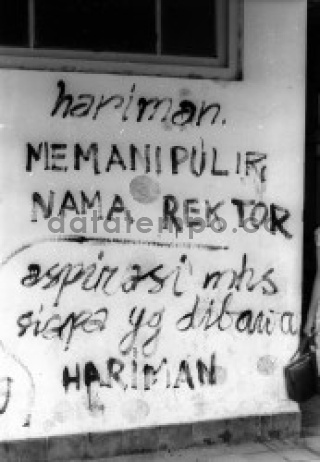 hariman.
MEMANIPULIR
NAMA REKTOR
datatempo.co
aspirasi mhs
siapa yg dibawa
HARIMAN